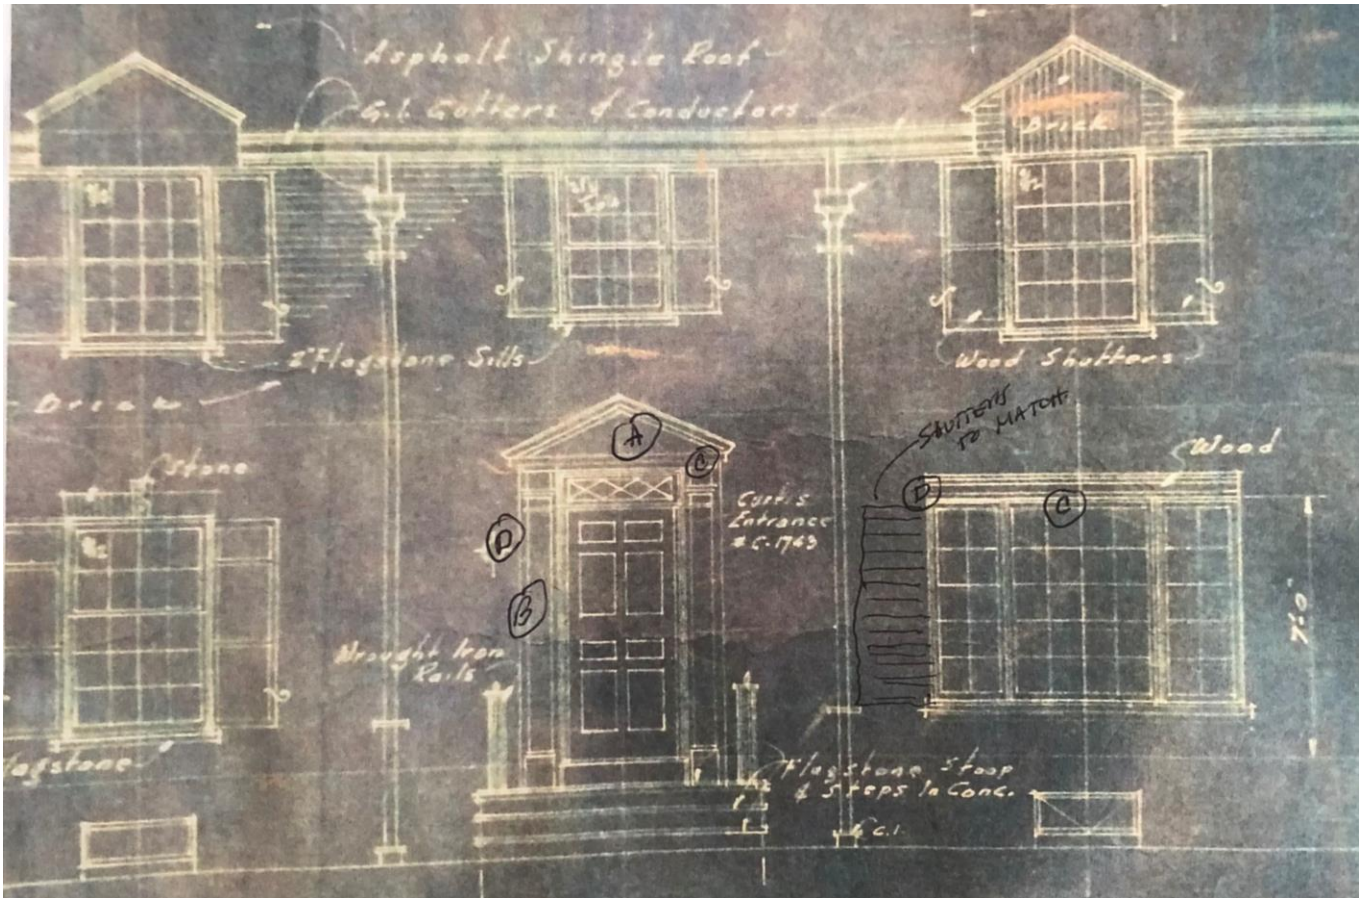 Asphalt Shingle Roof
G.I. Gutters & Conductors
Brick
8/12
2" Flagstone Sills
Wood Shutters
Brick
SHUTTERS
TO MATCH
A
C
Stone
Wood
D
C
Curtis
Entrance
# C-1763
D
B
7'-0"
Wrought Iron
Rails
Flagstone Stoop
& Steps In Conc.
C.I.